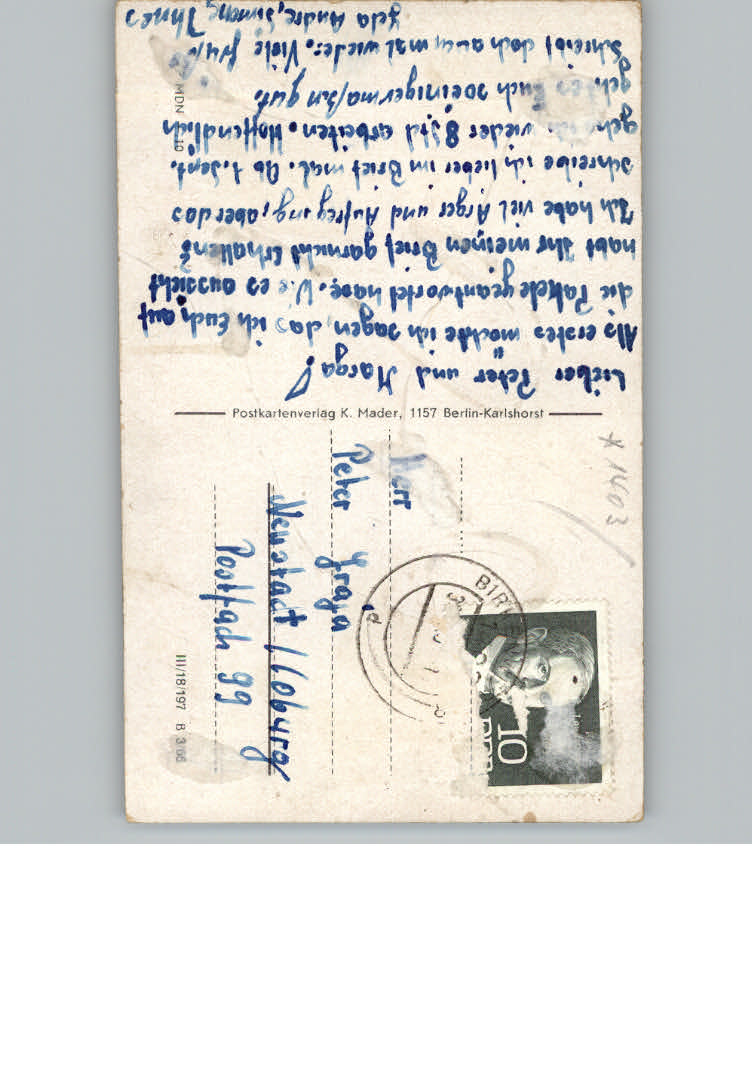 Lieber Peter und Marga!
Als erstes möchte ich sagen, das ich Euch auf
die Pakete geantwortet habe. Wie es aussieht
habt Ihr meinen Brief garnicht erhalten?
Ich habe viel Ärger und Aufregung, aber das
schreibe ich lieber im Brief mal. Ab 1. Sept.
gehe ich wieder 8 Std arbeiten. Hoffendlich
geht es Euch so einigermaßen gut.
Schreibt doch auch mal wieder. Viele
Andre, Simone,
MDN
Postkartenverlag K. Mader, 1157 Berlin-Karlshorst
* 1403
Herr
Peter
Neustadt / Coburg
Postfach 99
III/18/197 B 3/66
10
DDR